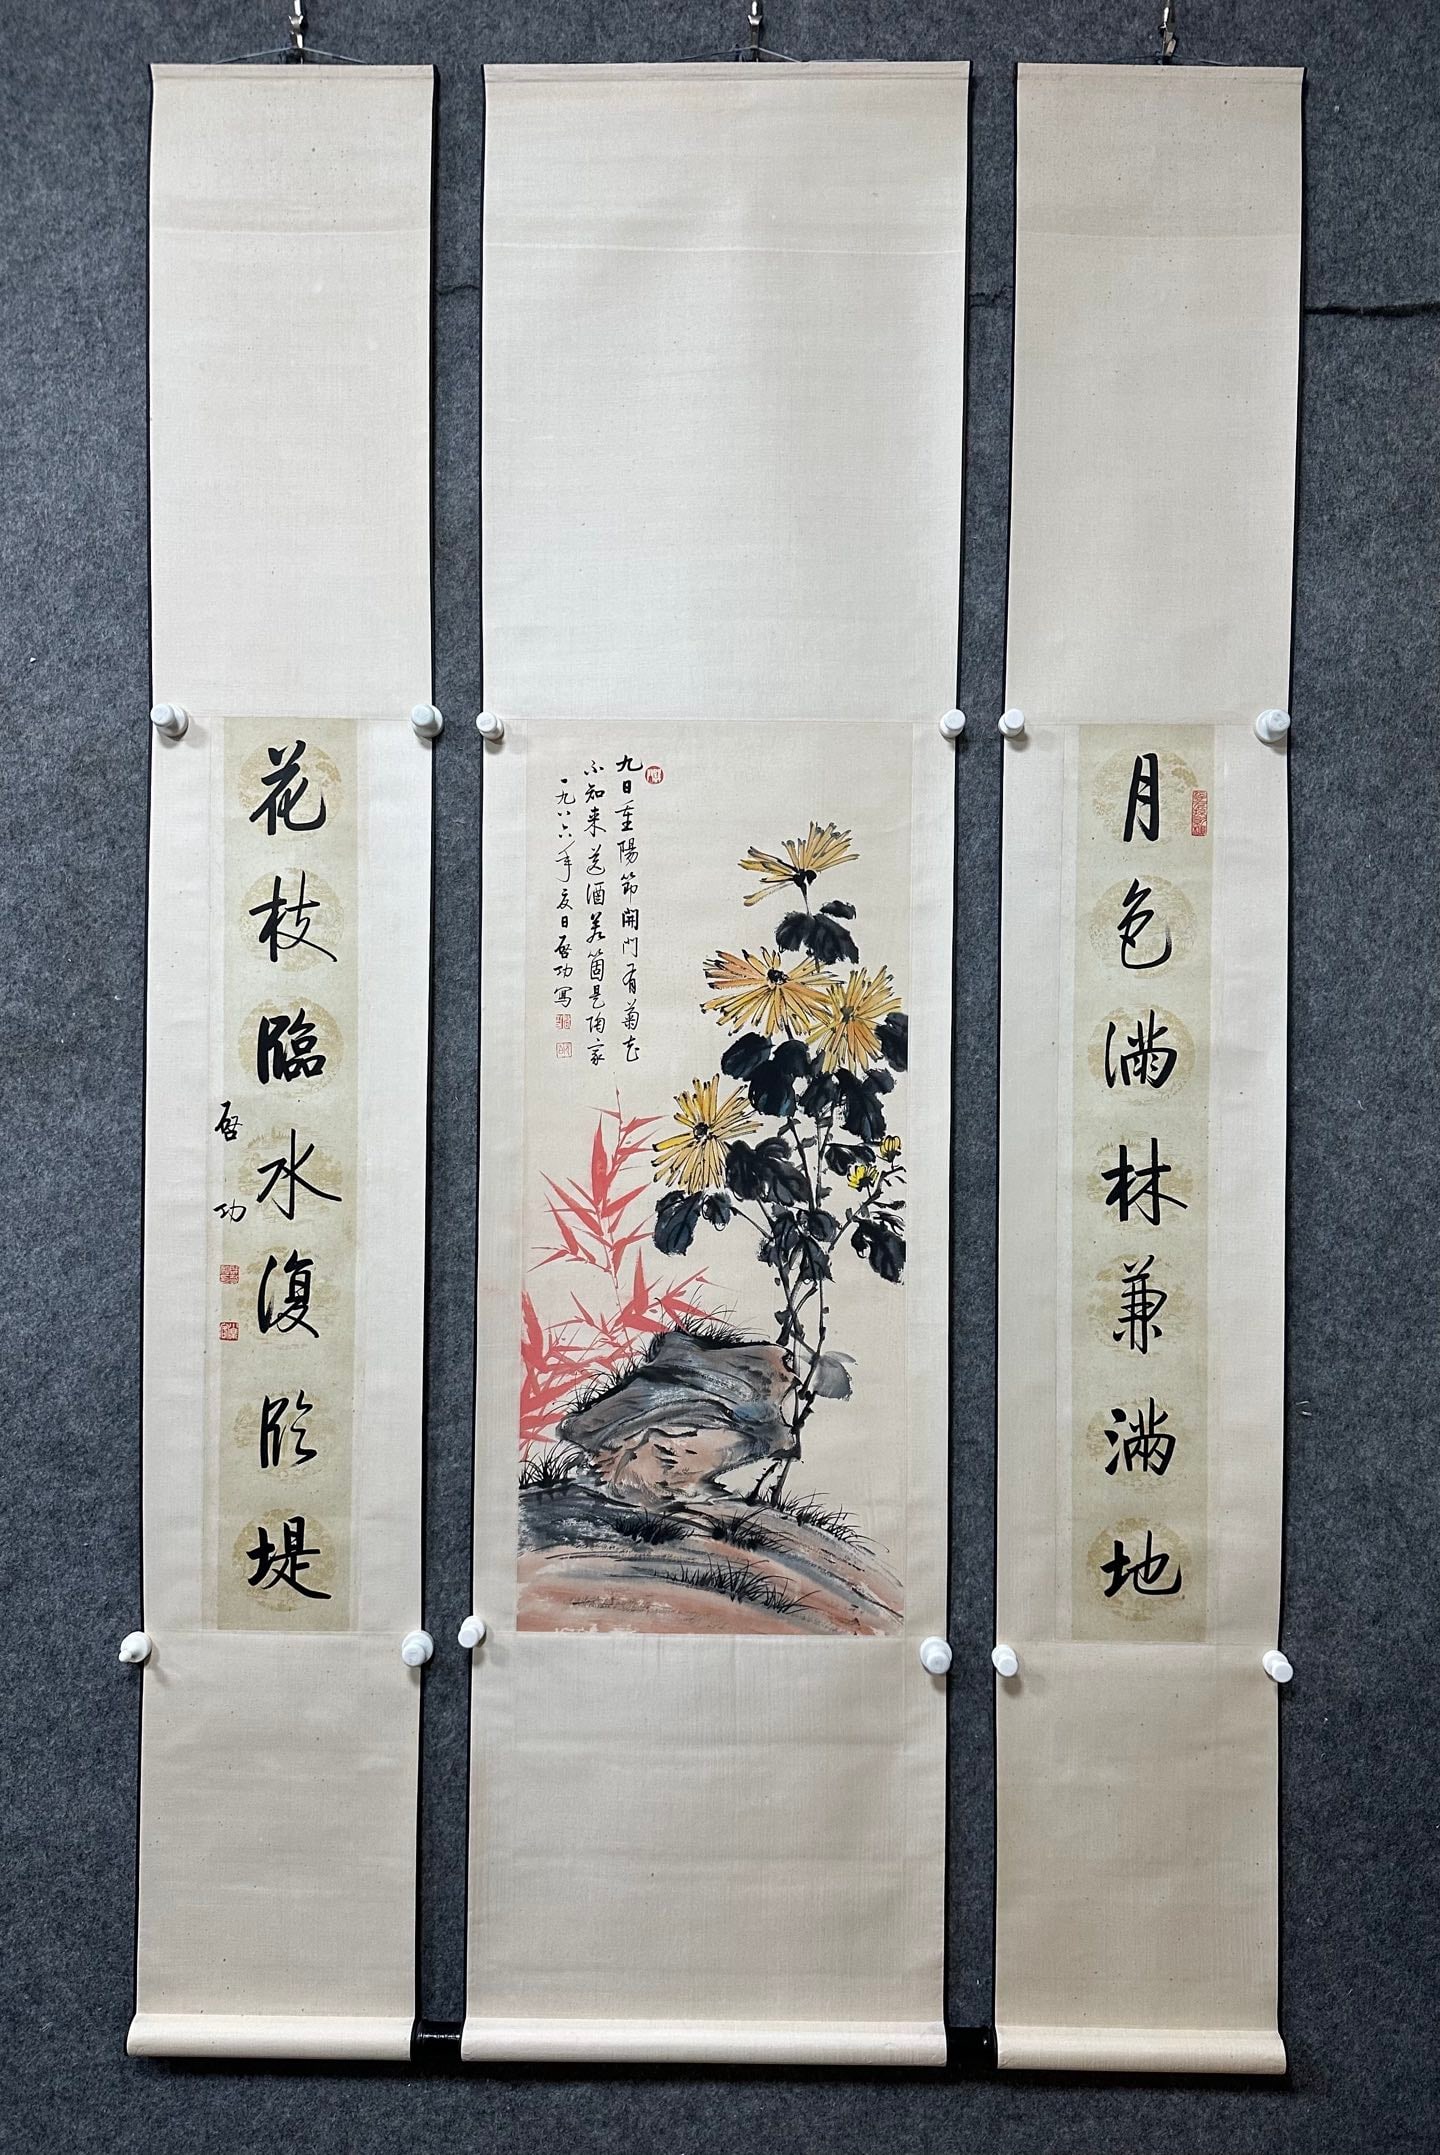 月色滿林兼滿地
九日重陽節開門有菊花
不知来送酒若箇是陶家
一九八六年夏日啓功寫
花枝臨水復临堤
啓功